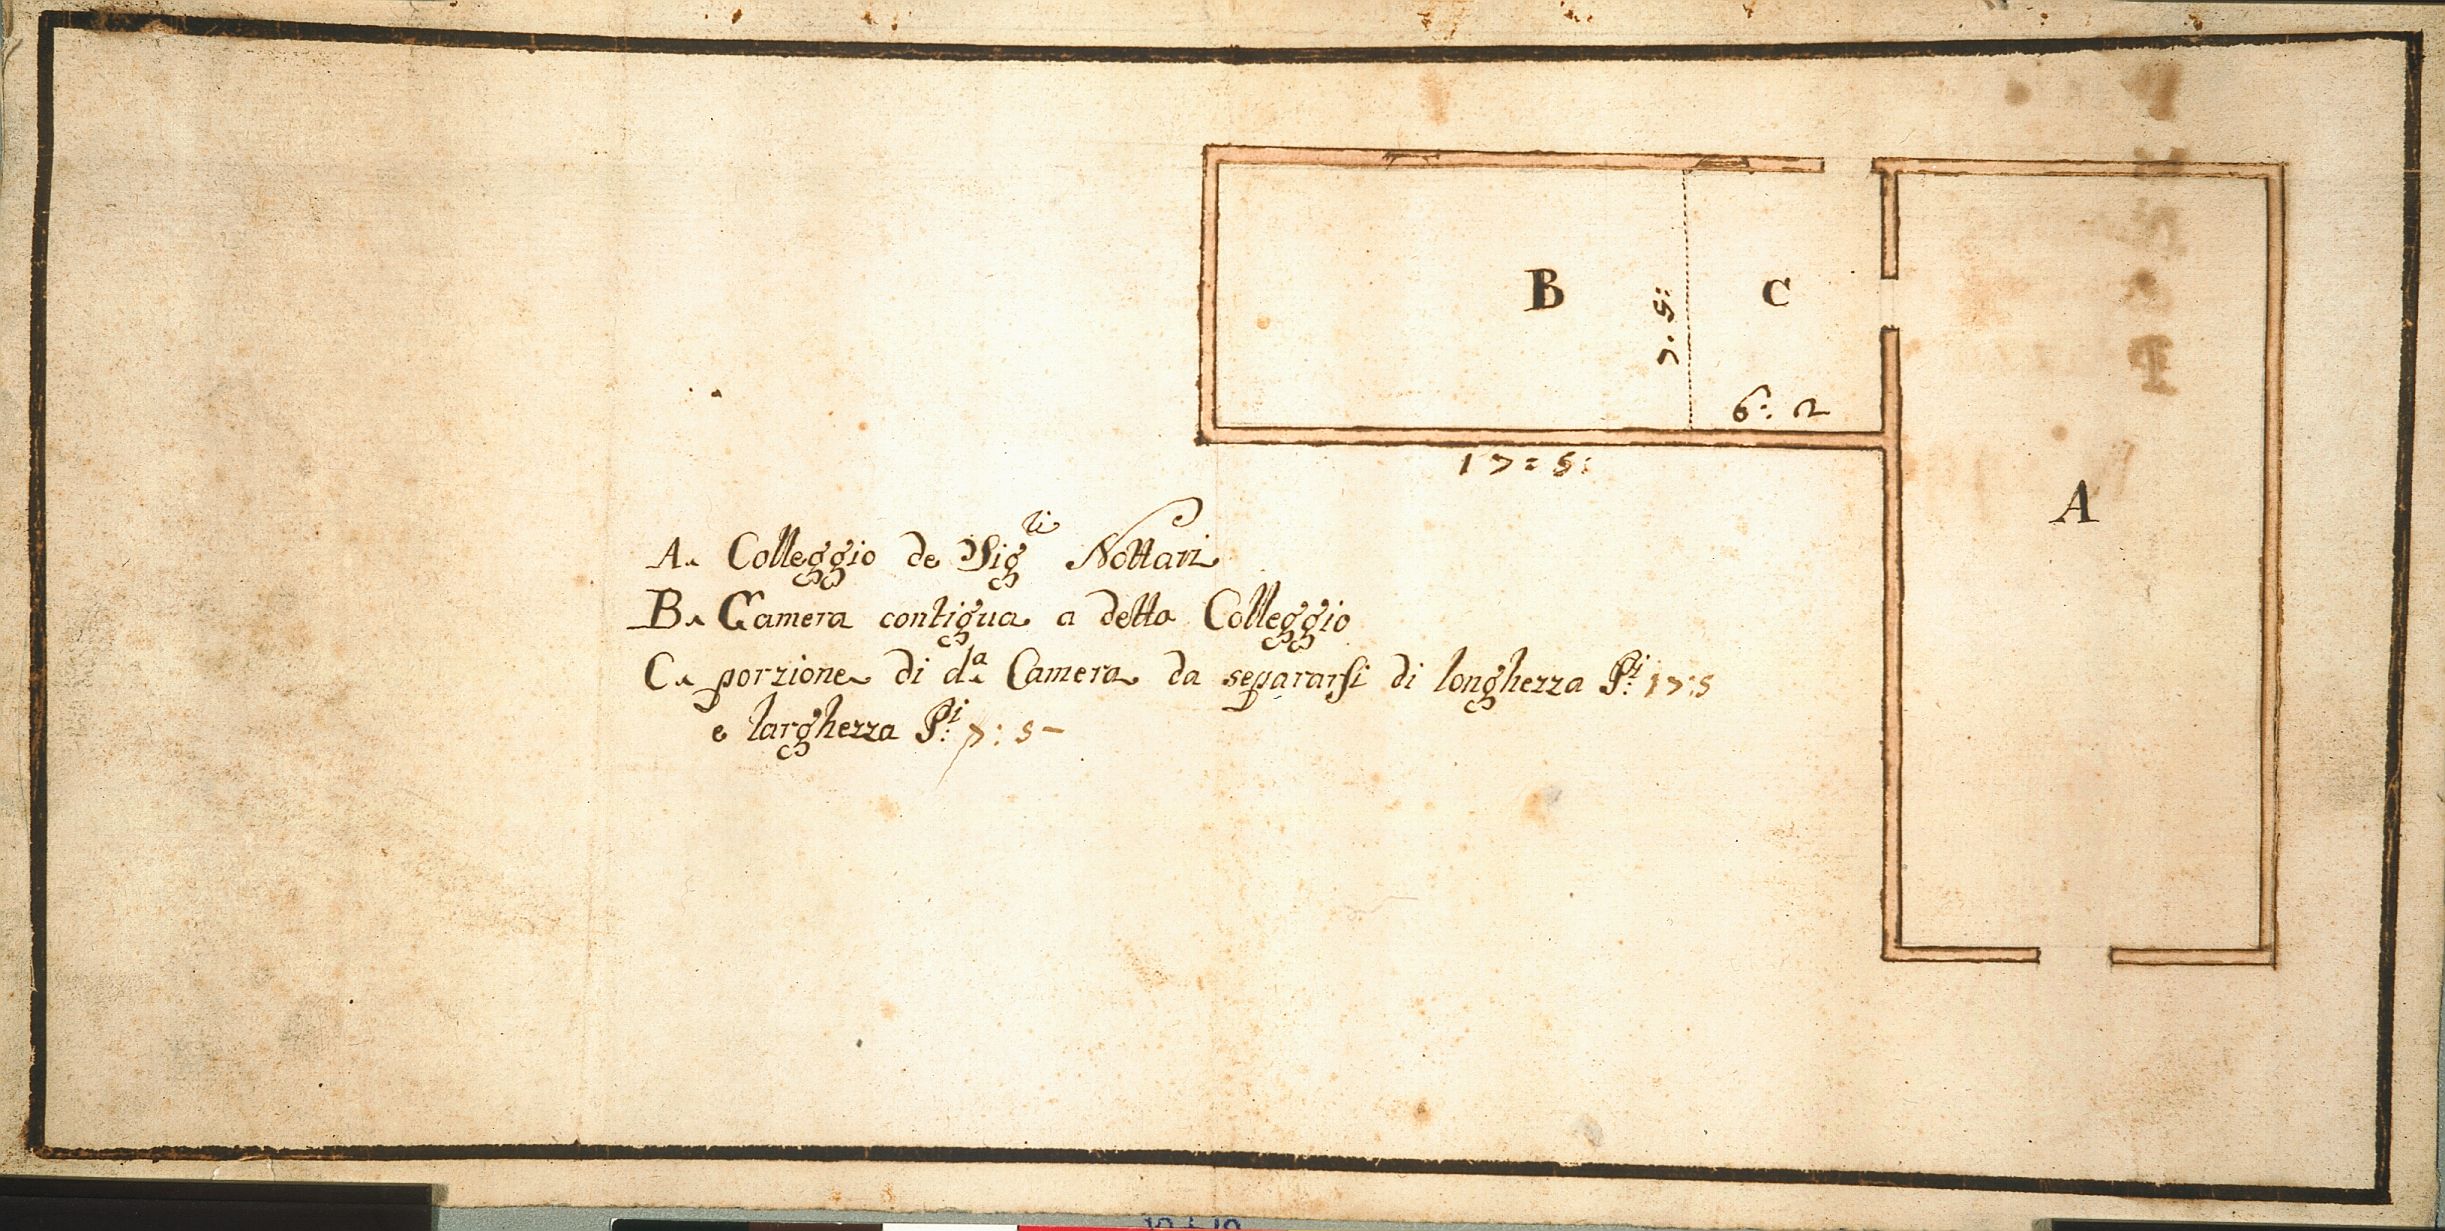 B
C
7. 5:
6: 2
17: 5:
A
A. Colleggio de Sig.ri Nottari
B. Camera contigua a detto Colleggio
C. porzione di d.a Camera da separarsi di longhezza P.i 17:5
e larghezza P.i 7: 5-